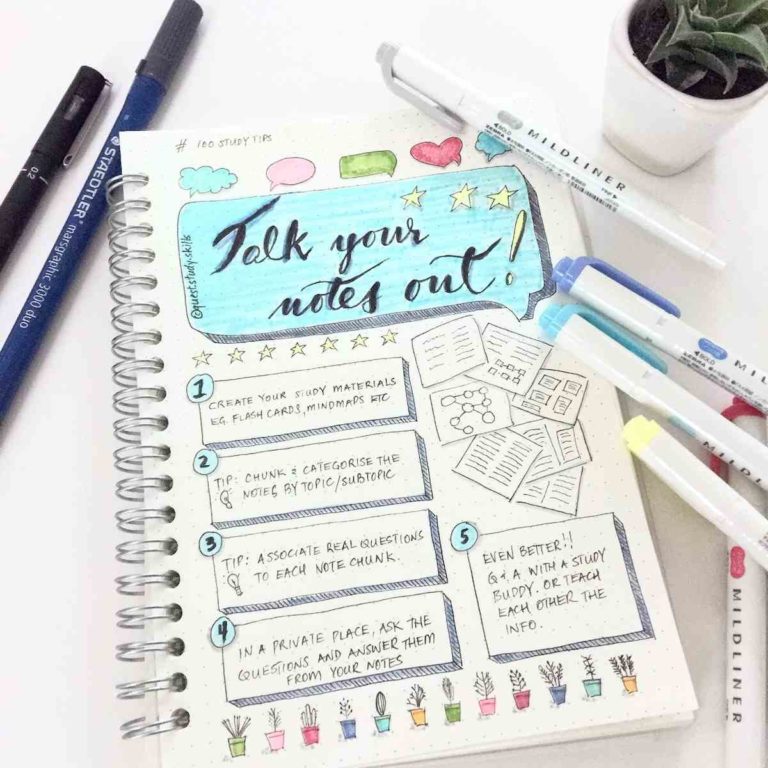 # 100 STUDY TIPS
@quest.study.skills
Talk your
notes out!
1
CREATE YOUR STUDY MATERIALS
EG. FLASH CARDS, MINDMAPS ETC
2
TIP: CHUNK & CATEGORISE THE
NOTES BY TOPIC/SUBTOPIC
3
TIP: ASSOCIATE REAL QUESTIONS
TO EACH NOTE CHUNK.
4
IN A PRIVATE PLACE, ASK THE
QUESTIONS AND ANSWER THEM
FROM YOUR NOTES
5
EVEN BETTER!!
Q & A WITH A STUDY
BUDDY. OR TEACH
EACH OTHER THE
INFO.
0.2
STAEDTLER
marsgraphic 3000 duo
BOLD
MILDLINER
BOLD
MILDLINER
MILDLINER